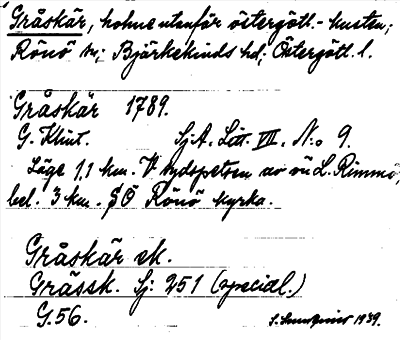 Gråskär, holme utanför östergötl.-kusten;
Rönö sn; Björkekinds hd; Östergötl. l.
Gråskär 1789.
G. Klint. Sj.A. Litt. VII. No 9.
Läge 1,1 km. V sydspetsen av ön L. Rimmö,
bel. 3 km. SÖ Rönö kyrka.
Gråskär ek.
Grässk. Sj: 251 (special.)
G.56. 1939.